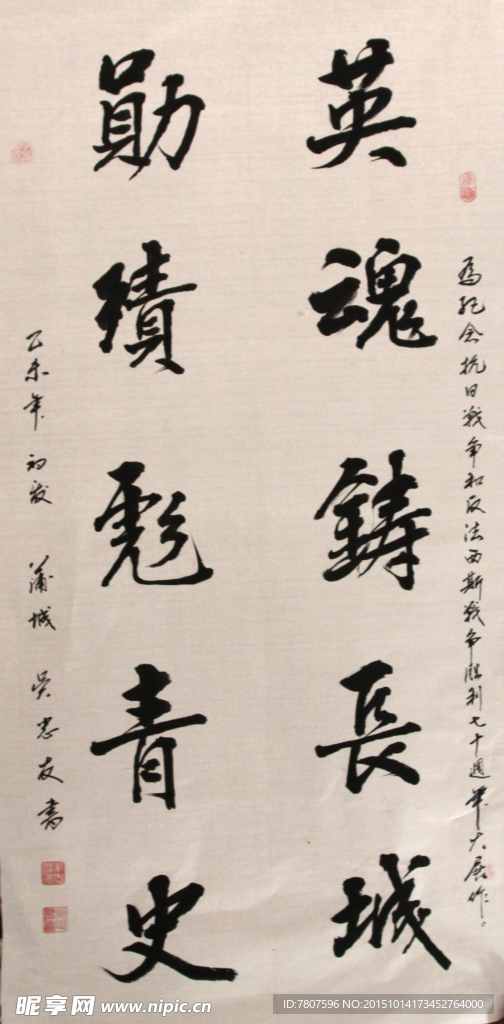 為紀念抗日戰爭和反法西斯戰爭勝利七十週年大展作
英魂鑄長城
勛績彪青史
乙未年 初夏 蒲城 吳忠友書
昵享网 www.nipic.cn
ID:7807596 NO:20151014173452764000